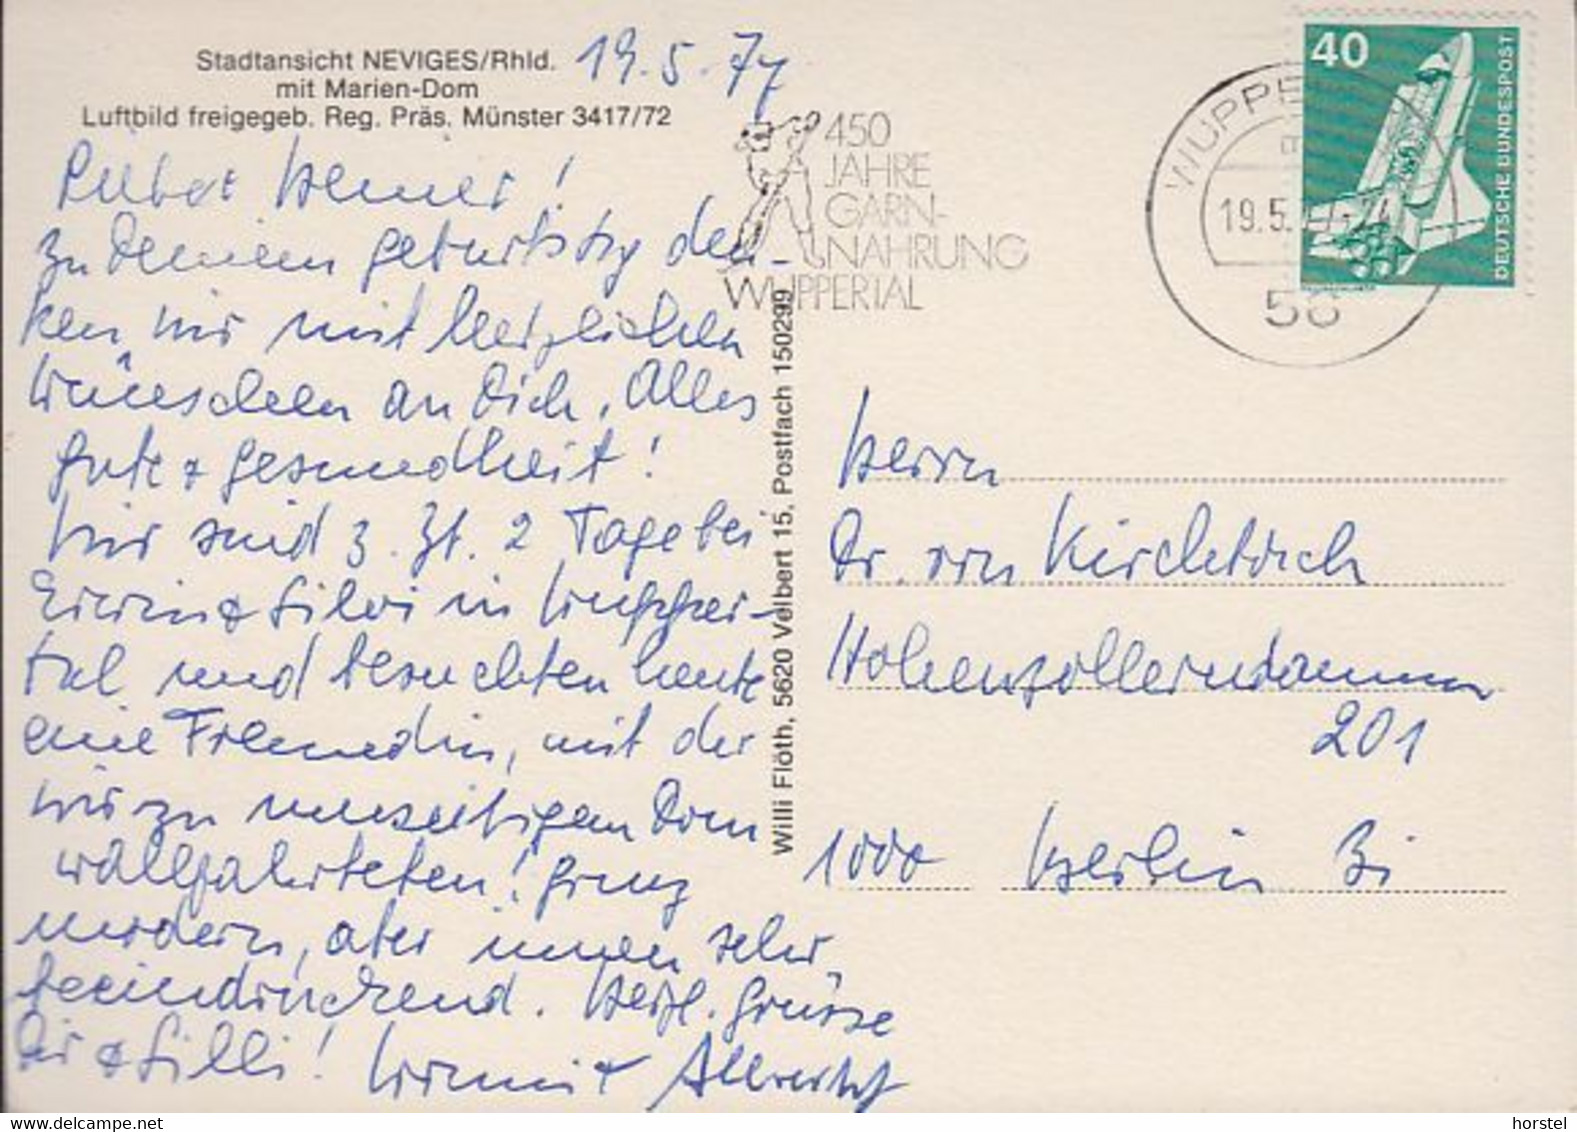 Stadtansicht NEVIGES/Rhld.
mit Marien-Dom
Luftbild freigegeb. Reg. Präs. Münster 3417/72
19.5.77
Lieber Werner!
zu Deinem Geburtstag den-
ken wir mit herzlichen
Wünschen an Dich. Alles
Gute + Gesundheit!
Wir sind z. Zt. 2 Tage bei
Erwin + Silvi in Wupper-
tal und besuchten heute
eine Freundin, mit der
wir zu umseitigem Dom
wallfahrteten! Ganz
modern, aber innen sehr
beeindruckend. Herzl. Grüsse
Dir + Silli! Albrecht
Willi Flöth, 5620 Velbert 15, Postfach 150299
450
JAHRE
GARN-
NAHRUNG
WUPPERTAL
WUPPE
19.5.77-24
56
40
DEUTSCHE BUNDESPOST
Herrn
Dr. von Kirchbach
Hohenzollerndamm
201
1000 Berlin 31
horstel
www.delcampe.net